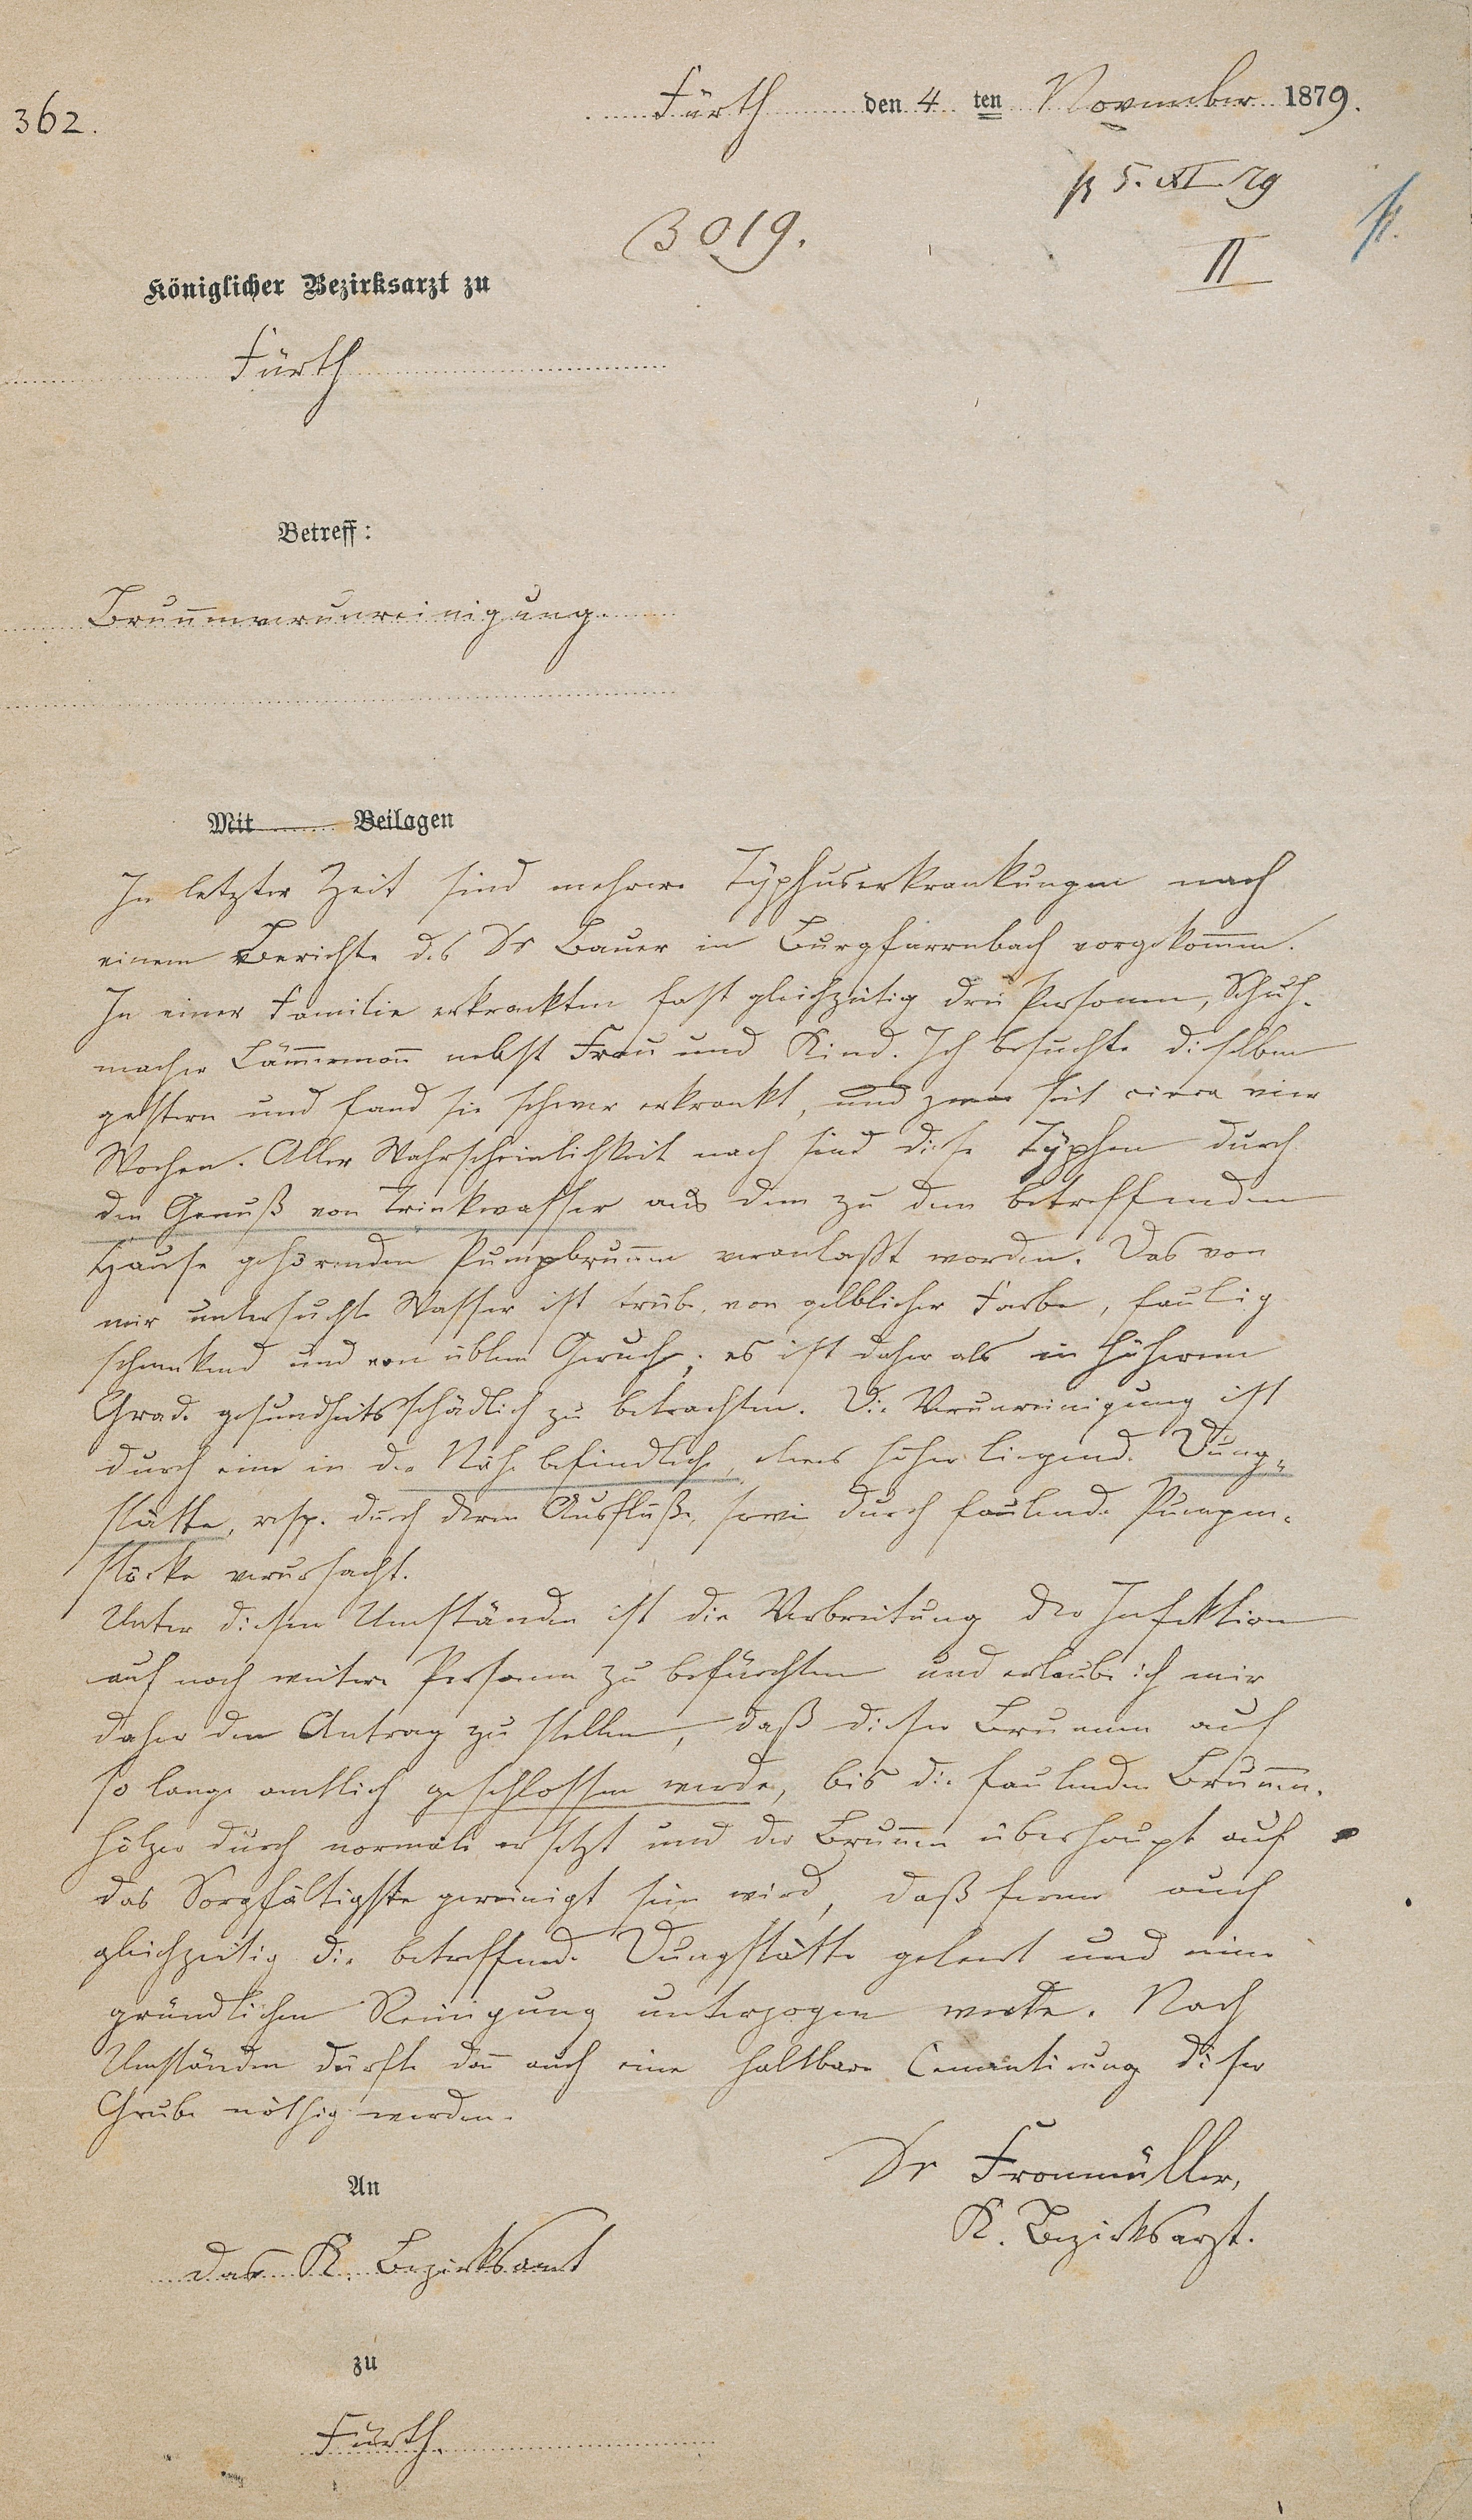 362.
Fürth den 4 ten November 1879.
5. XI 79
3019.
II
Königlicher Bezirksarzt zu
Fürth
Betreff:
Brunnenverunreinigung.
Mit Beilagen
In letzter Zeit sind mehrere Typhuserkrankungen nach
einem Berichte des Dr Bauer in Burgfarrnbach vorgekommen.
In einer Familie erkrankten fast gleichzeitig drei Personen, Schuh-
macher Lämmermann nebst Frau und Kind. Ich besuchte dieselben
gestern und fand sie schwer erkrankt, und zwar seit circa vier
Wochen. Aller Wahrscheinlichkeit nach sind diese Typhen durch
den Genuß von Trinkwasser aus dem zu dem betreffenden
Hause gehörenden Pumpbrunnen veranlaßt worden. Das von
mir untersuchte Wasser ist trübe, von gelblicher Farbe, faulig
schmekend und von üblem Geruch; es ist daher als in höherem
Grade gesundheitsschädlich zu betrachten. Die Verunreinigung ist
durch eine in der Nähe befindliche, etwas höher liegende Dung-
stätte, resp. durch deren Ausflüße, sowie durch faulende Pumpen-
stöcke verursacht.
Unter diesen Umständen ist die Verbreitung der Infektion
auf noch weitere Personen zu befürchten und erlaube ich mir
daher den Antrag zu stellen, daß dieser Brunnen auf
so lange amtlich geschlossen werde, bis die faulenden Brunnen-
hölzer durch normale ersetzt und der Brunnen überhaupt auf
das Sorgfältigste gereinigt sein wird, daß ferner auch
gleichzeitig die betreffende Dungstätte geleert und einer
gründlichen Reinigung unterzogen werde. Nach
Umständen dürfte dann auch eine haltbare Cementirung dieser
Grube nöthig werden.
Dr Fronmüller,
K. Bezirksarzt.
An
das K. Bezirksamt
zu
Fürth.